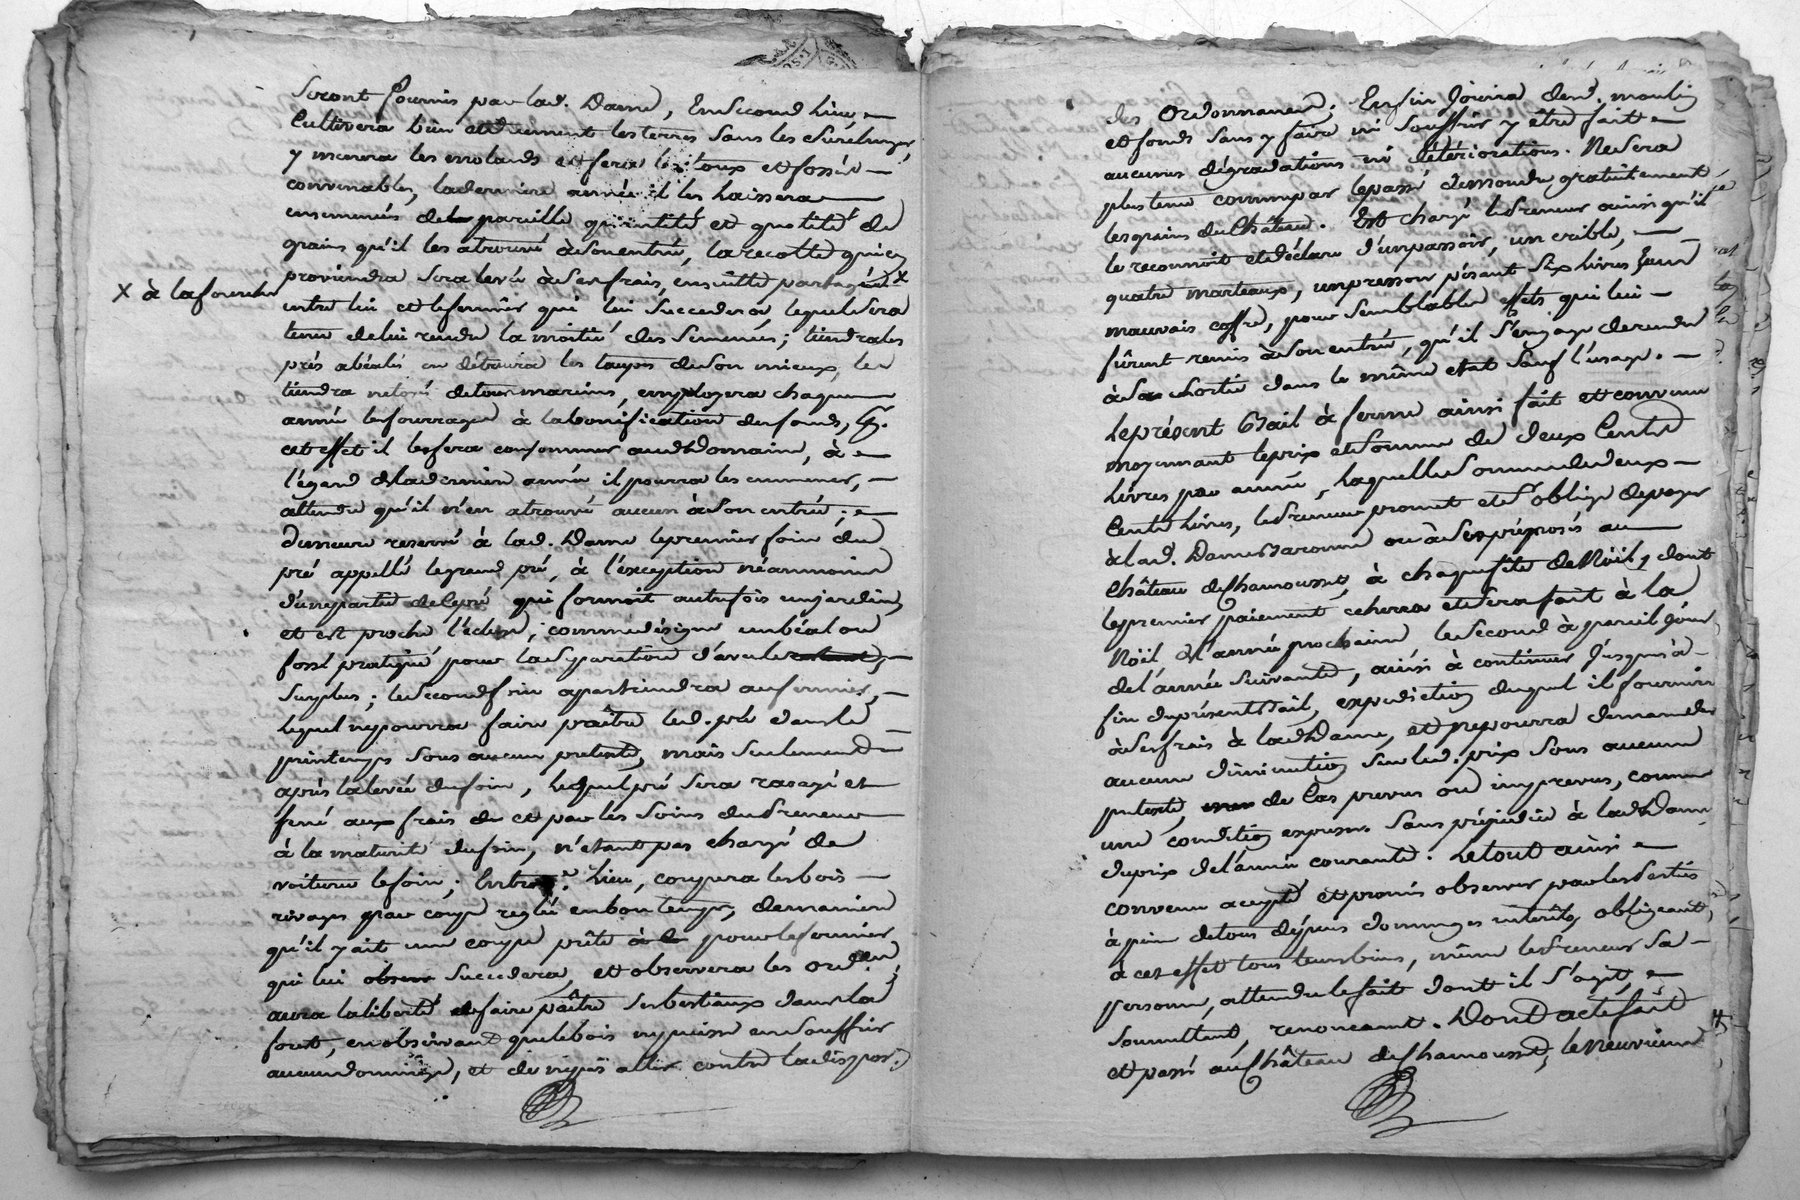 seront fournis par lad. Dame, En second lieu,
Cultivera bien et duement les terres sans les surcharger,
y menera les molards et fera les toux et fossés
convenables, la derniere année il les laissera
ensemencés de pareille quantité et quotité de
grains qu'il les a trouvé à son entrée, la recolte qui en
proviendra sera levée à ses frais, ensuitte partagée X
X à la fourche
entre lui et le fermier qui lui succedera lequel sera
tenu de lui rendre la moitié des semences; tiendra les
prés abéalés en détruira les taupes de son mieux, les
tiendra netoyés de tous marins, employera chaque
année les fourrages à la bonification des fonds, &
cet effet il les fera consommer aud. Domaine, à
l'égard de la derniere année il pourra les emmener,
attendu qu'il n'en a trouvé aucun à son entrée;
Demeure reservé à lad. Dame le premier foin du
pré appellé le grand pré, à l'exception néanmoins
d'une partie de ce pré qui formoit autrefois un jardin
et est proche l'écluse, comme désigne un béal ou
fossé pratiqué pour la separation d'avec le
surplus; le second foin apartiendra au fermier,
lequel ne pourra faire paître led. pré dans le
printemps sous aucun pretexte, mais seulement
après la levée du foin, lequel pré sera rasé et
fené aux frais de et par les soins du Preneur
à la maturité du foin, n'étant pas chargé de
voiturer le foin; lieu, coupera les bois
rivages par coupe reglée en bon temps, de maniere
qu'il y ait une coupe prête pour le fermier
qui lui succedera, et observera les ord.
aura la liberté de faire paître ses bestiaux dans la
foret, en observant que le bois n'y puisse en souffrir
aucun dommage, et de n'y aller contre la dispos.
des Ordonnances; Enfin Jouira desd. moulin
et fonds sans y faire ni souffrir y être fait
aucunes dégradations ni détériorations. Ne sera
plus tenu comme par le passé de moudre gratuitement
les grains du Château. Est chargé le Preneur ainsi qu'il
le reconnoit et déclare d'un passoir, un crible,
quatre marteaux, un pressoir pésant six livres & un
mauvais coffre, pour semblables effets qui lui
fûrent remis à son entrée, qu'il s'engage de rendre
à sa sortie dans le même etat sauf l'usage.
Le présent Bail à ferme ainsi fait et convenu
moyennant le prix et somme de deux Cents
livres par année, laquelle somme de deux
Cents livres, le Preneur promet et s'oblige de payer
à lad. Dame Baronne ou à ses préposés au
Château de Chamousset, à chaque fête de Noël, dont
le premier paiement echerra et sera fait à la
Noël de l'année prochaine le second à pareil jour
de l'année suivante, ainsi à continuer jusques à
fin du présent Bail, expedition duquel il fournira
à ses frais à lad. Dame, et ne pourra demander
aucune diminution sur led. prix sous aucun
pretexte, de Cas prevus ou imprevus, comme
une condition expresse sans préjudice à lad. Dame
du prix de l'année courante. Le tout ainsi
convenu accepté et promis observer par les Parties
à peine de tous dépens dommages interêts, obligeant
à cet effet tous leurs biens, même le Preneur sa
personne, attendu le fait dont il s'agit,
soumettant, renonceant. Dont acte fait
et passé au Château de Chamousset, le Neuvieme